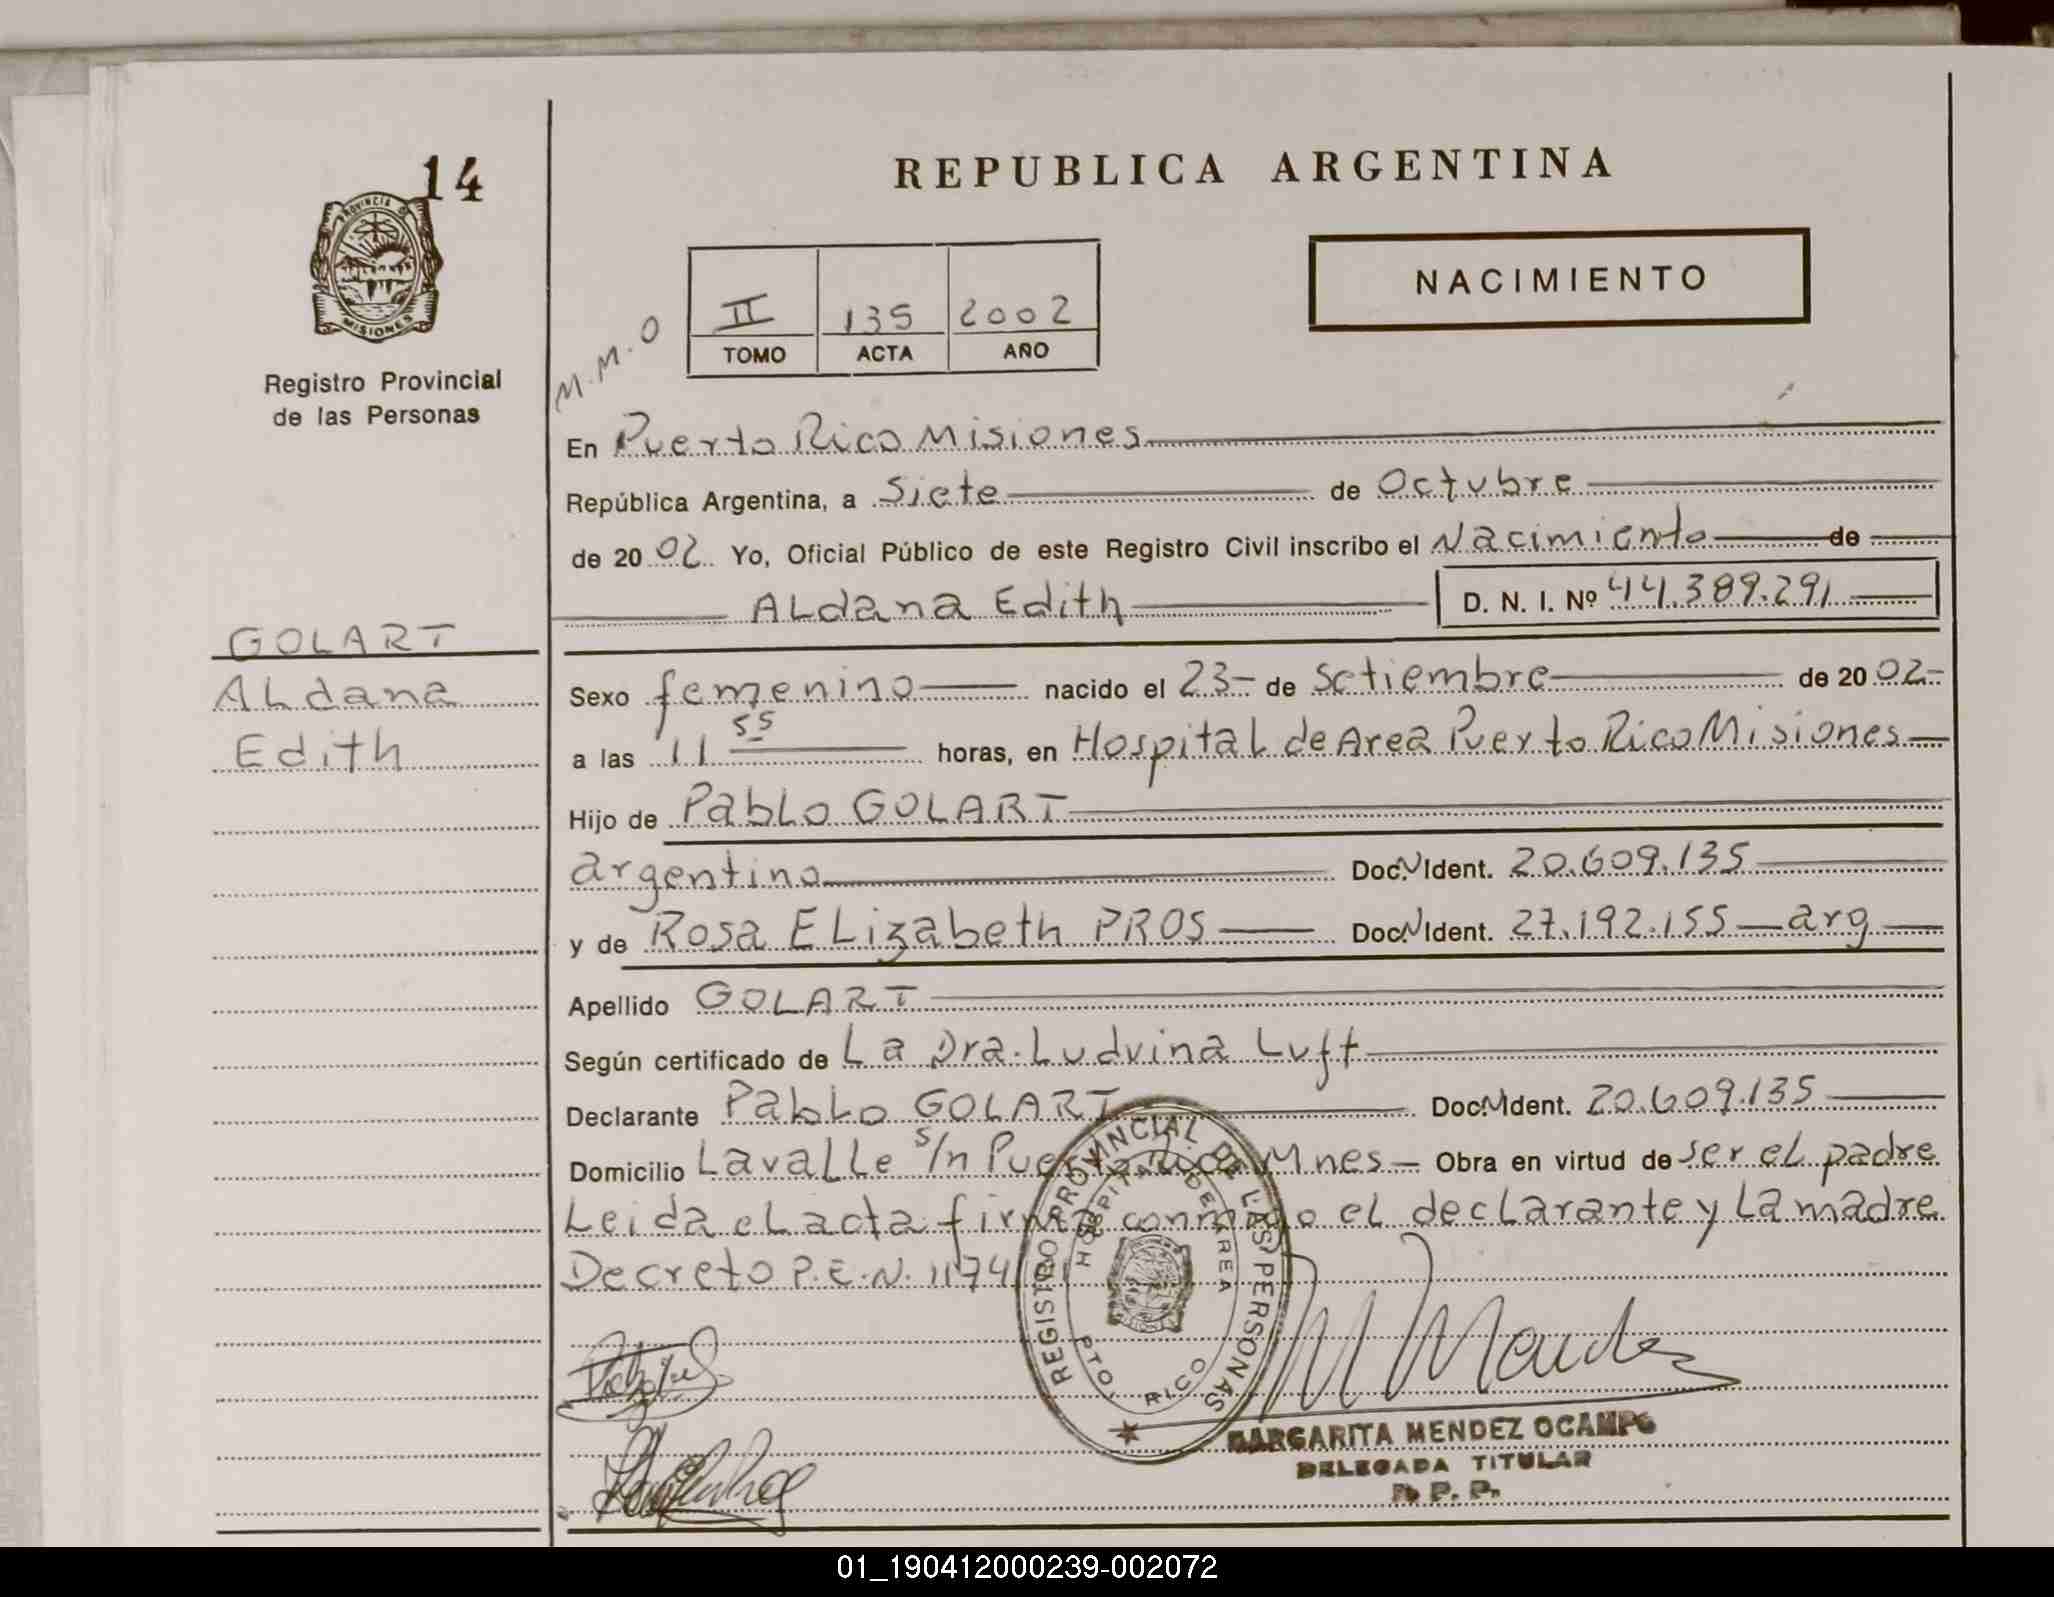 14
PROVINCIA DE
MISIONES
Registro Provincial
de las Personas
GOLART
ALdana
Edith
REPUBLICA ARGENTINA
NACIMIENTO
II 135 2002
TOMO ACTA AÑO
M.M.O
En Puerto Rico Misiones
República Argentina, a Siete de Octubre
de 2002 Yo, Oficial Público de este Registro Civil inscribo el Nacimiento de
ALdana Edith D. N. I. Nº 44.389.291
Sexo femenino nacido el 23- de Setiembre de 2002-
a las 11 55 horas, en HospitaL de Area Puerto Rico Misiones
Hijo de PabLo GOLART
argentino Doc.N Ident. 20.609.135
y de Rosa ELizabeth PROS Doc.N Ident. 27.192.155 arg
Apellido GOLART
Según certificado de La Dra. Ludvina Luft
Declarante PabLo GOLART Doc.N Ident. 20.609.135
Domicilio LavaLLe s/n Puerto Rico Mnes Obra en virtud de ser eL padre
Leida eL acta firma conmigo eL decLarante y La madre
Decreto P.E.N. 1174
REGISTRO PROVINCIAL DE LAS PERSONAS
HOSPITAL DE AREA
PTO. RICO
M Mendez
MARGARITA MENDEZ OCAMPO
DELEGADA TITULAR
R. P. P.
01_190412000239-002072